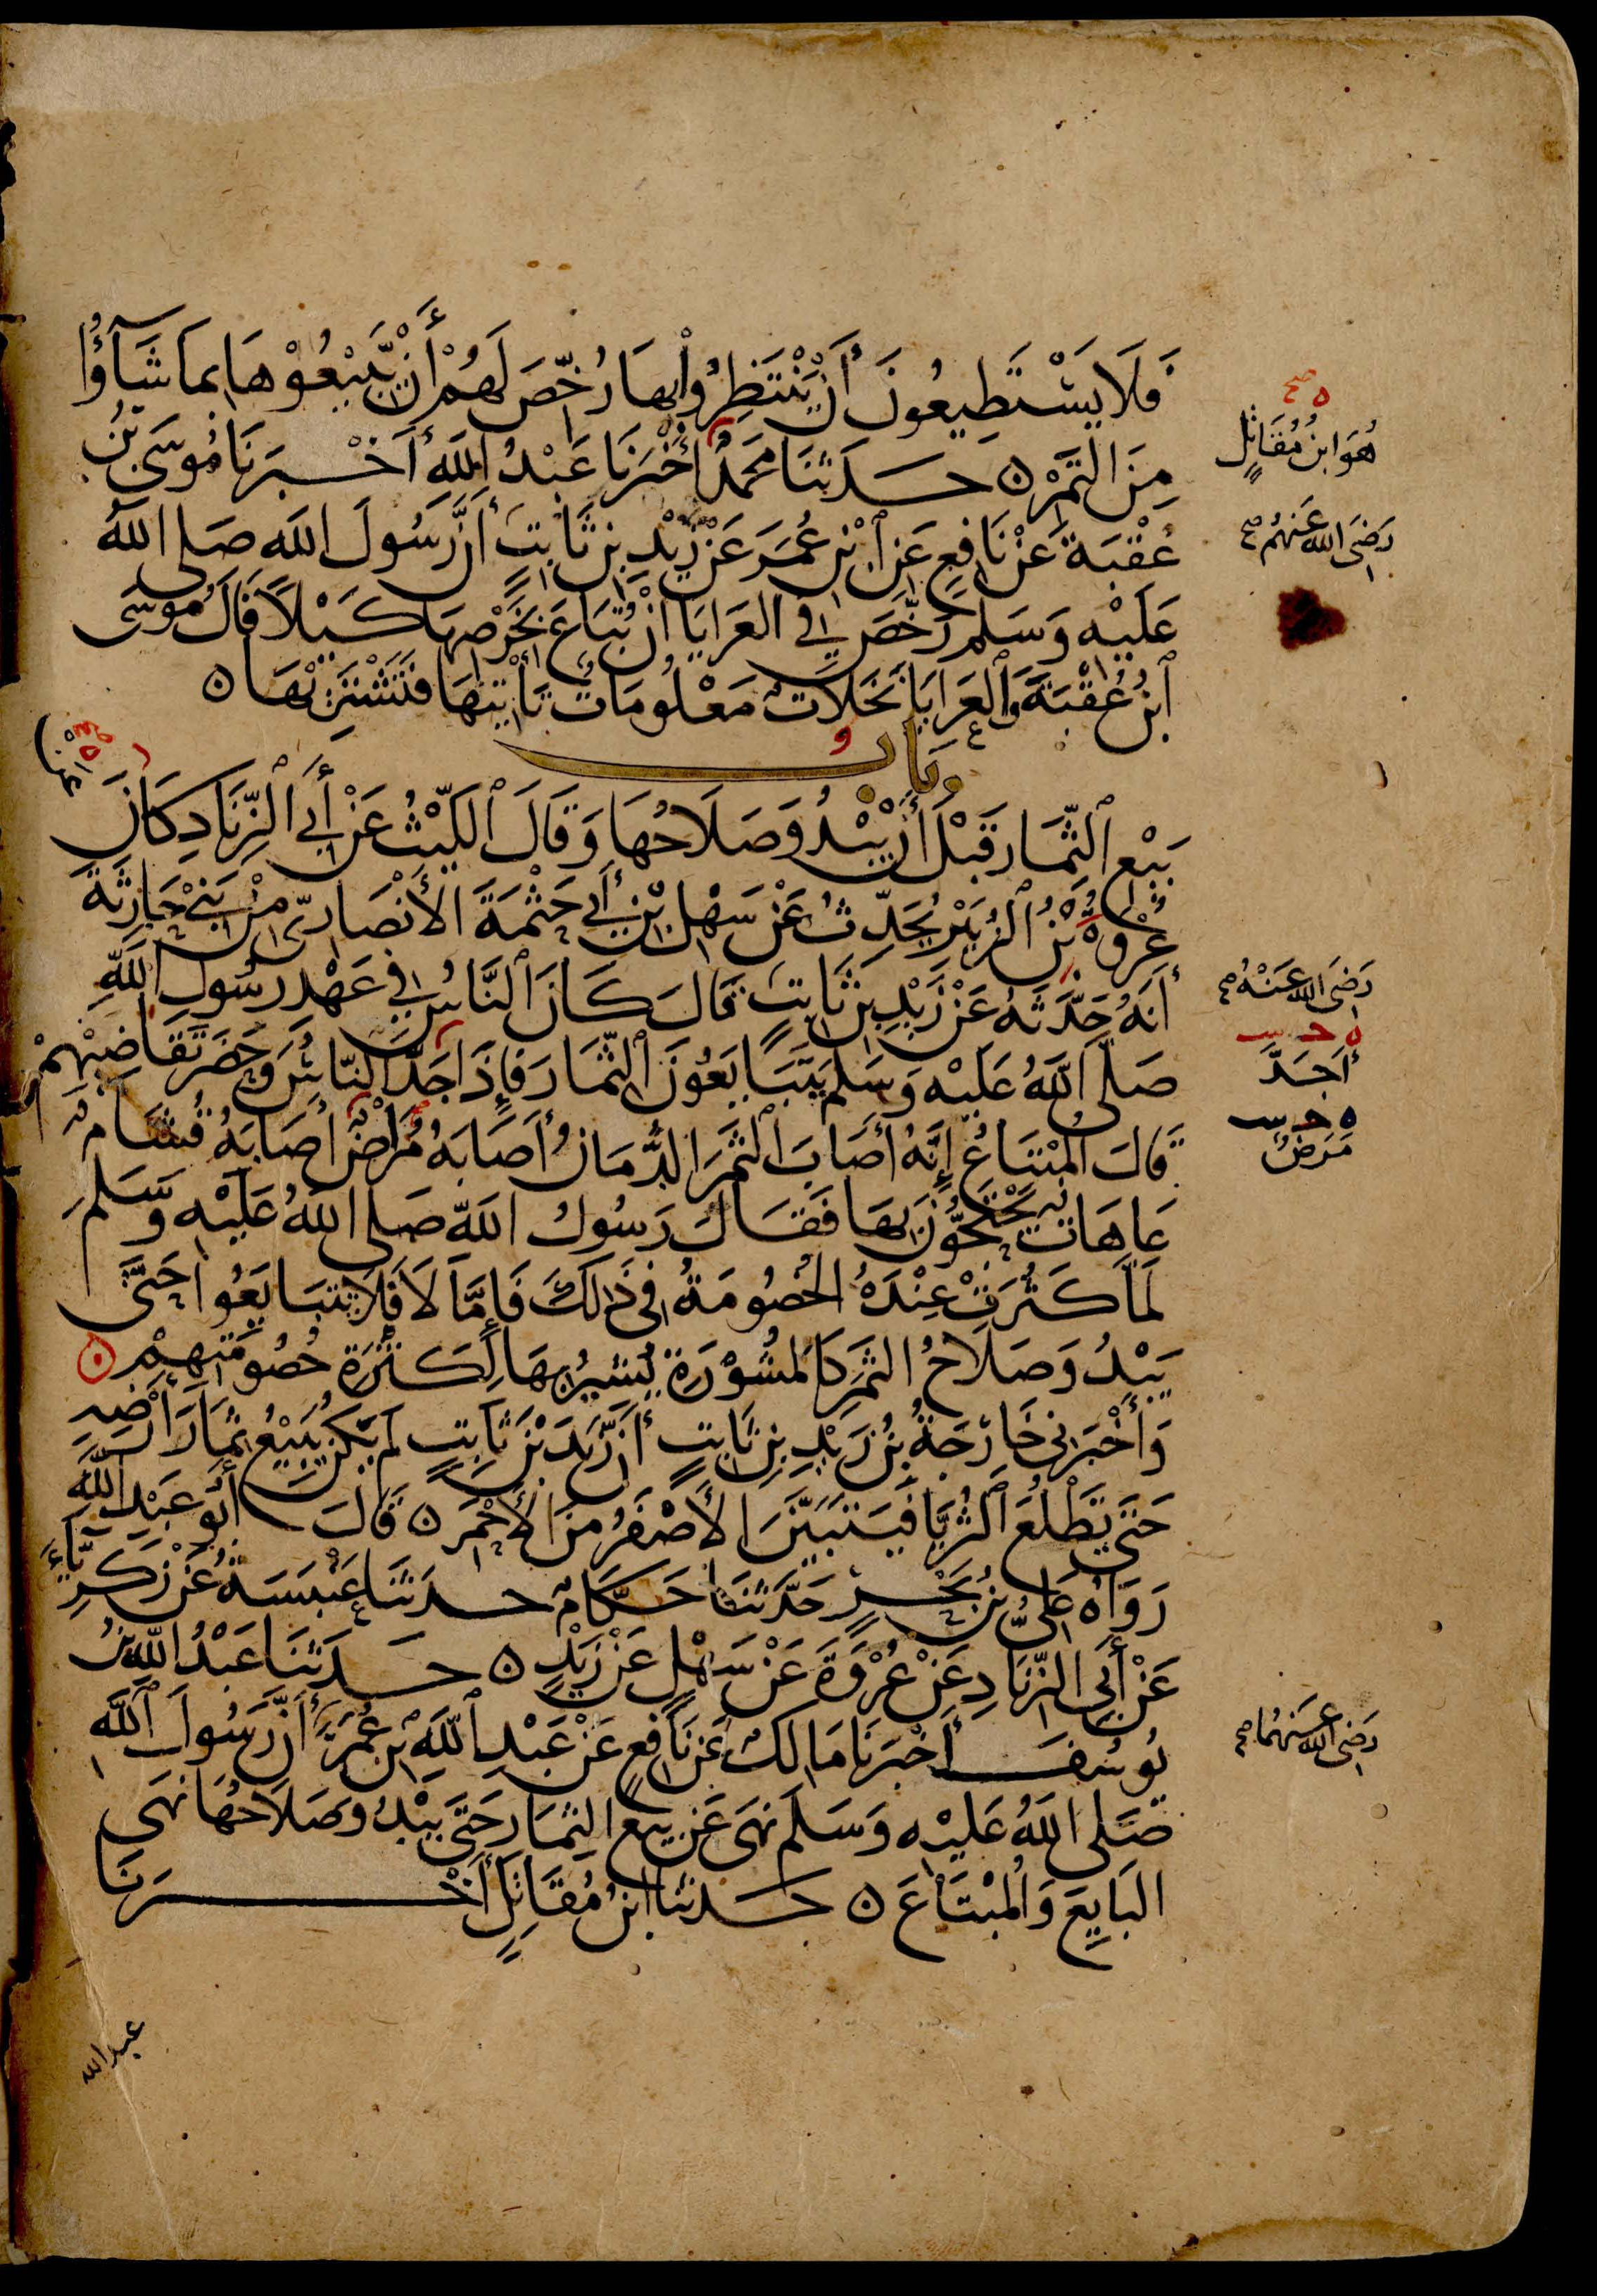 فَلَا يَسْتَطِيعُونَ أَنْ يَنْتَظِرُوا بِهَا رُخِّصَ لَهُمْ أَنْ يَبِيعُوهَا بِمَا شَآؤُا
مِنَ التَّمْرِ ۞ حَدَّثَنَا مُحَمَّدٌ أَخْبَرَنَا عَبْدُ اللَّهِ أَخْبَرَنَا مُوسَى بْنُ
هُوَ ابْنُ مُقَاتِلٍ
عُقْبَةَ عَنْ نَافِعٍ عَنِ ابْنِ عُمَرَ عَنْ زَيْدِ بْنِ ثَابِتٍ أَنَّ رَسُولَ اللَّهِ صَلَّى اللَّهُ
رَضِيَ اللَّهُ عَنْهُمْ
عَلَيْهِ وَسَلَّمَ رَخَّصَ فِي الْعَرَايَا أَنْ تُبَاعَ بِخَرْصِهَا كَيْلًا قَالَ مُوسَى
ابْنُ عُقْبَةَ وَالْعَرَايَا نَخَلَاتٌ مَعْلُومَاتٌ تَأْتِيهَا فَتَشْتَرِيهَا ۞
بَابُ
بَيْعِ الثِّمَارِ قَبْلَ أَنْ يَبْدُوَ صَلَاحُهَا وَقَالَ اللَّيْثُ عَنْ أَبِي الزِّنَادِ كَانَ
عُرْوَةُ بْنُ الزُّبَيْرِ يُحَدِّثُ عَنْ سَهْلِ بْنِ أَبِي حَثْمَةَ الْأَنْصَارِيِّ مِنْ بَنِي حَارِثَةَ
أَنَّهُ حَدَّثَهُ عَنْ زَيْدِ بْنِ ثَابِتٍ قَالَ كَانَ النَّاسُ فِي عَهْدِ رَسُولِ اللَّهِ
رَضِيَ اللَّهُ عَنْهُ
صَلَّى اللَّهُ عَلَيْهِ وَسَلَّمَ يَتَبَايَعُونَ الثِّمَارَ فَإِذَا جَدَّ النَّاسُ وَحَضَرَ تَقَاضِيهِمْ
أَجَدَّ
قَالَ الْمُبْتَاعُ إِنَّهُ أَصَابَ الثَّمَرَ الدُّمَانُ أَصَابَهُ مُرَاضٌ أَصَابَهُ قُشَامٌ
مَرَضٌ
عَاهَاتٌ يَحْتَجُّونَ بِهَا فَقَالَ رَسُولُ اللَّهِ صَلَّى اللَّهُ عَلَيْهِ وَسَلَّمَ
لَمَّا كَثُرَتْ عِنْدَهُ الْخُصُومَةُ فِي ذَلِكَ فَإِمَّا لَا فَلَا تَتَبَايَعُوا حَتَّى
يَبْدُوَ صَلَاحُ الثَّمَرِ كَالْمَشُورَةِ يُشِيرُ بِهَا لِكَثْرَةِ خُصُومَتِهِمْ ۞
وَأَخْبَرَنِي خَارِجَةُ بْنُ زَيْدِ بْنِ ثَابِتٍ أَنَّ زَيْدَ بْنَ ثَابِتٍ لَمْ يَكُنْ يَبِيعُ ثِمَارَ أَرْضِهِ
حَتَّى تَطْلُعَ الثُّرَيَّا فَيَتَبَيَّنَ الْأَصْفَرُ مِنَ الْأَحْمَرِ ۞ قَالَ أَبُو عَبْدِ اللَّهِ
رَوَاهُ عَلِيُّ بْنُ بَحْرٍ حَدَّثَنَا حَكَّامٌ حَدَّثَنَا عَنْبَسَةُ عَنْ زَكَرِيَّاءَ
عَنْ أَبِي الزِّنَادِ عَنْ عُرْوَةَ عَنْ سَهْلٍ عَنْ زَيْدٍ ۞ حَدَّثَنَا عَبْدُ اللَّهِ بْنُ
يُوسُفَ أَخْبَرَنَا مَالِكٌ عَنْ نَافِعٍ عَنْ عَبْدِ اللَّهِ بْنِ عُمَرَ أَنَّ رَسُولَ اللَّهِ
رَضِيَ اللَّهُ عَنْهُمَا
صَلَّى اللَّهُ عَلَيْهِ وَسَلَّمَ نَهَى عَنْ بَيْعِ الثِّمَارِ حَتَّى يَبْدُوَ صَلَاحُهَا نَهَى
الْبَايِعَ وَالْمُبْتَاعَ ۞ حَدَّثَنَا ابْنُ مُقَاتِلٍ أَخْبَرَنَا
عبد الله